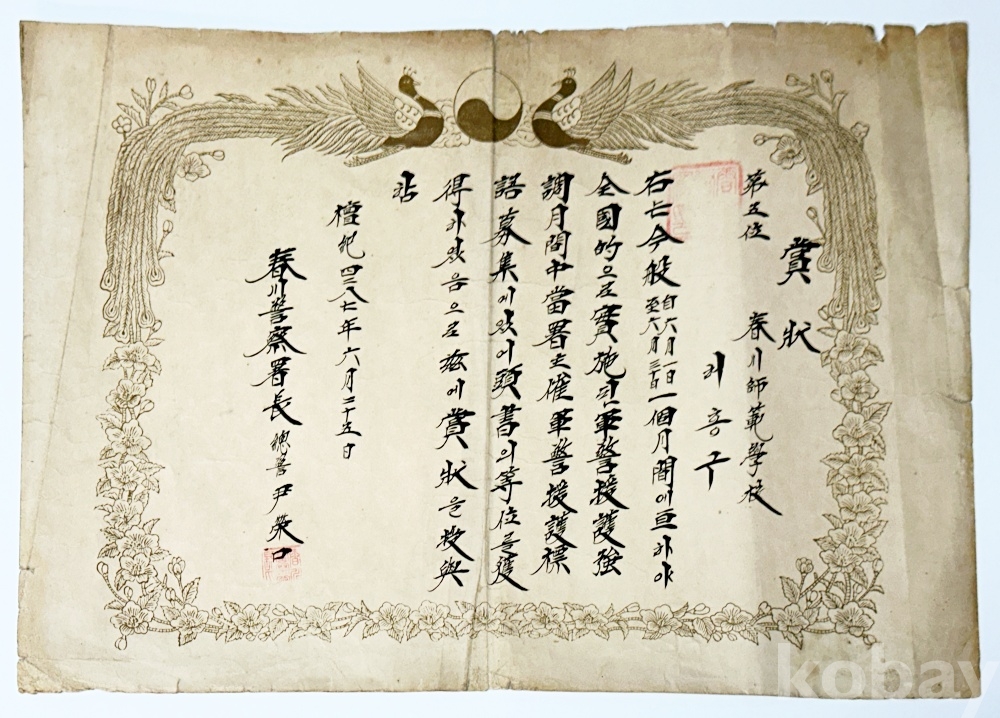 賞狀
第五位 春川師範學校
흥구
右는今般自六月一日至六月三〇日一個月間에亘하야
全國的으로實施된軍警援護強
調月間中當署主催軍警援護標
語募集에있어頭書의等位를獲
得하였음으로玆에賞狀을授與
함
檀紀四二八七年六月二十五日
春川警察署長 總警 尹
kobay